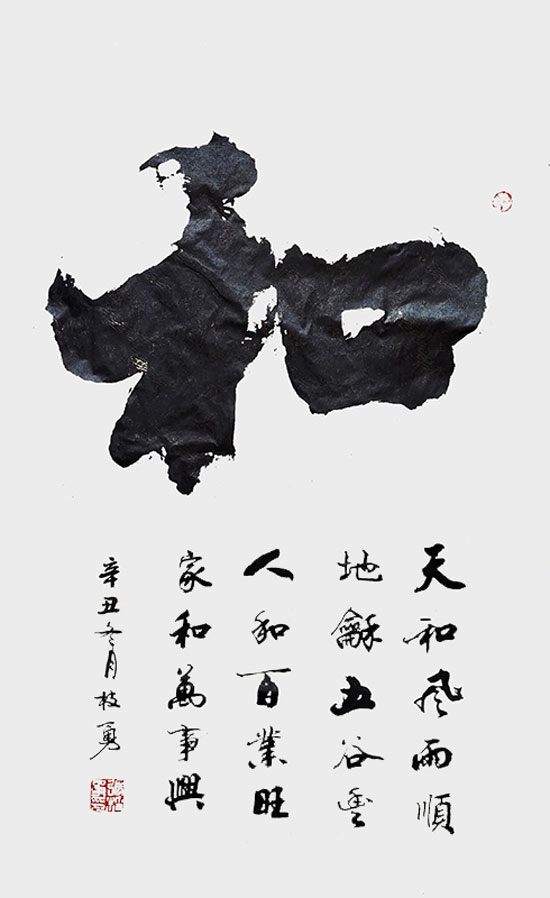 和
天和風雨順
地龢五谷豊
人和百業旺
家和萬事興
辛丑冬月枝勇